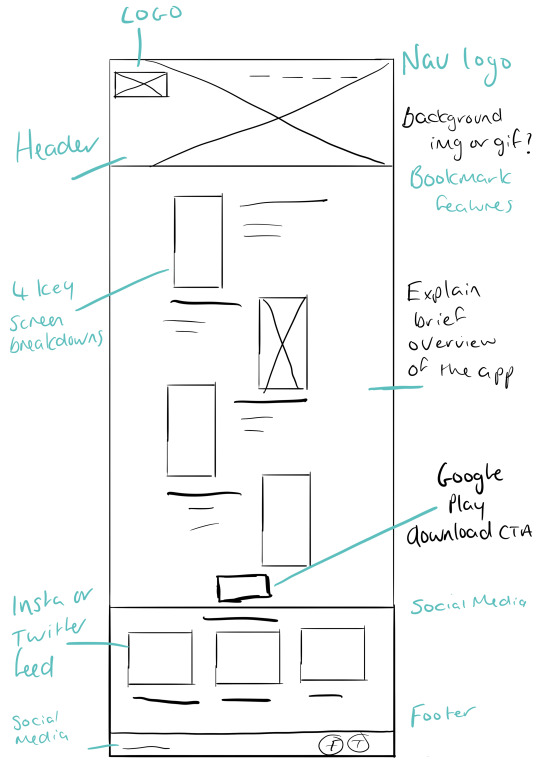 LOGO
Nav logo
Background
img or gif?
Header
Bookmark
features
4 key
screen
breakdowns
Explain
brief
overview
of the app
Google
Play
download CTA
Insta or
Twitter
feed
Social Media
Social
Media
Footer
F T